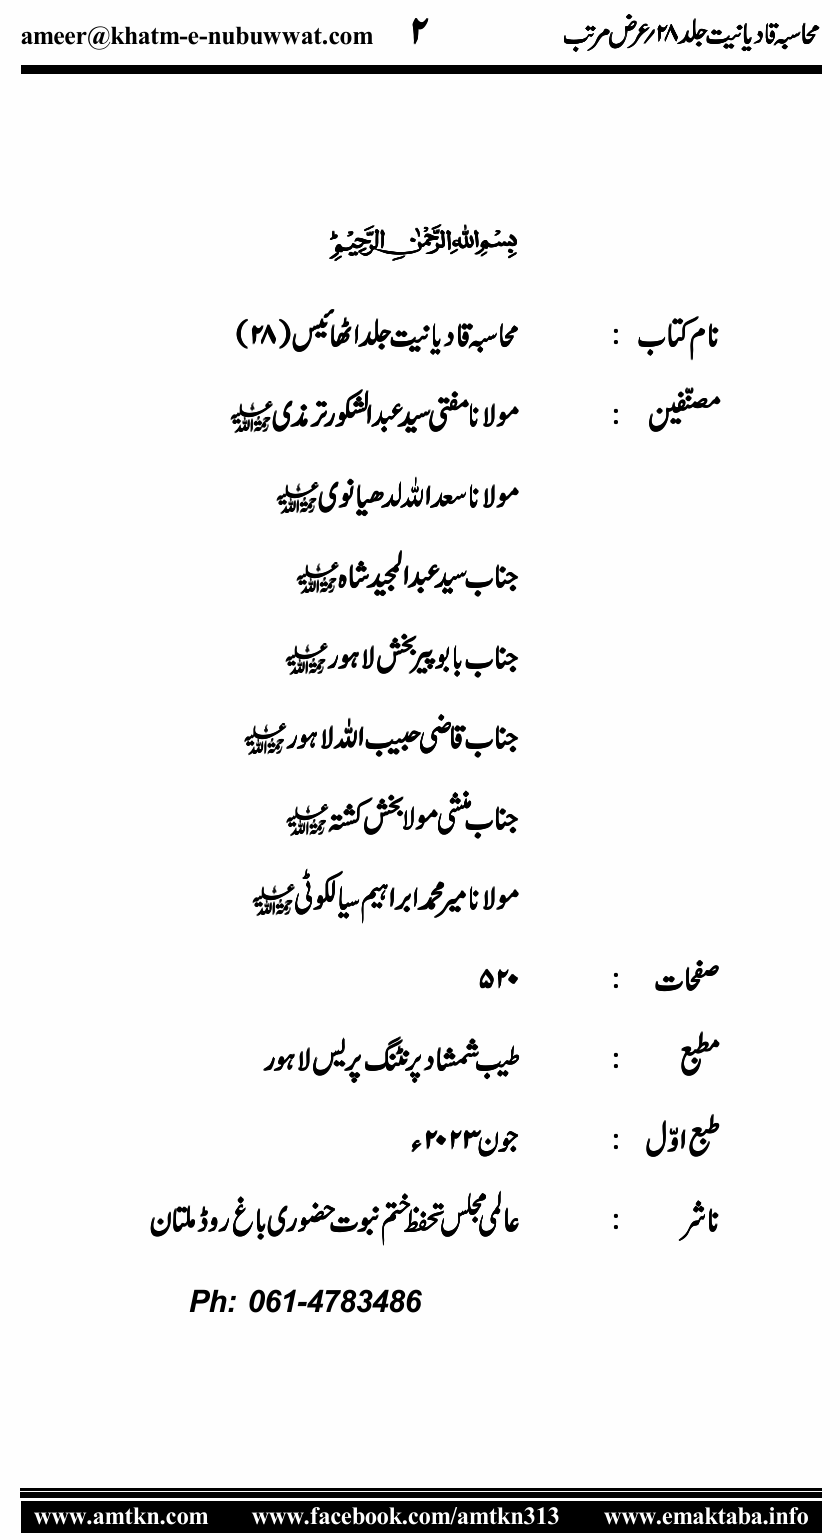 محاسبہ قادیانیت جلد ۲۸/عرض مرتب ۲ ameer@khatm-e-nubuwwat.com
بسم الله الرحمن الرحيم
نام کتاب : محاسبہ قادیانیت جلد اٹھائیس (۲۸)
مصنّفین : مولانا مفتی سید عبدالشکور ترمذی رحمۃ اللہ علیہ
مولانا سعد اللہ لدھیانوی رحمۃ اللہ علیہ
جناب سید عبدالمجید شاہ رحمۃ اللہ علیہ
جناب بابو پیر بخش لاہور رحمۃ اللہ علیہ
جناب قاضی حبیب اللہ لاہور رحمۃ اللہ علیہ
جناب منشی مولا بخش کشتہ رحمۃ اللہ علیہ
مولانا میر محمد ابراہیم سیالکوٹی رحمۃ اللہ علیہ
صفحات : ۵۲۰
مطبع : طیب شمشاد پرنٹنگ پریس لاہور
طبع اوّل : جون ۲۰۲۳ء
ناشر : عالمی مجلس تحفظ ختم نبوت حضوری باغ روڈ ملتان
Ph: 061-4783486
www.amtkn.com www.facebook.com/amtkn313 www.emaktaba.info